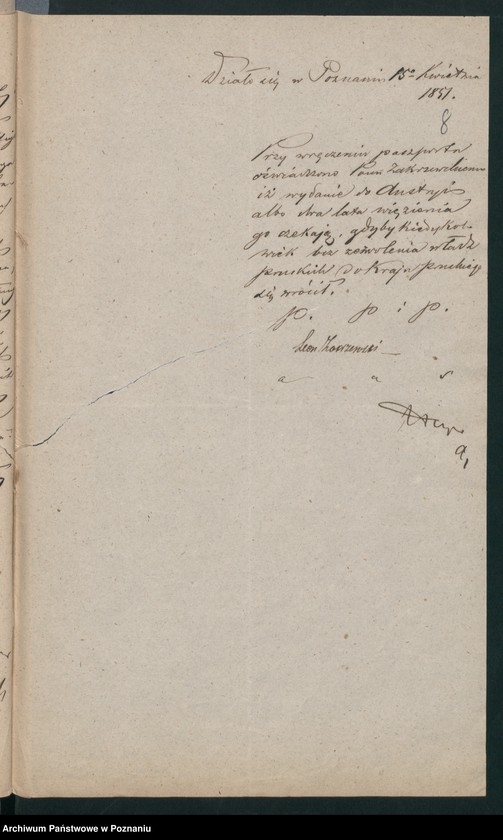 Działo się w Poznaniu 15º Kwietnia
1851.
8
Przy wręczeniu paszportu
oświadczono Panu Zakrzewskiemu
iż wydanie do Austryi
albo dwa lata więzienia
go czekają, gdyby kiedykol-
wiek bez zezwolenia władz
pruskich do Kraju pruskiego
się wrócił.
p. p i p.
Leon Zakrzewski
a u s
Archiwum Państwowe w Poznaniu